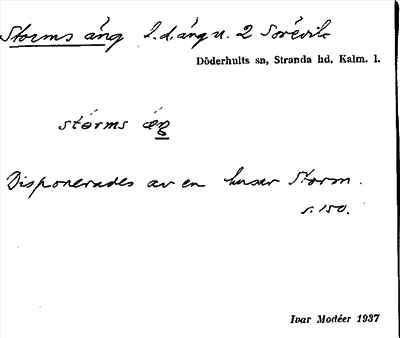 Storms äng f.d. äng u. 2 Sörevik
Döderhults sn, Stranda hd, Kalm. l.
stórms äŋ
Disponerades av en husar Storm.
s. 150.
Ivar Modéer 1937